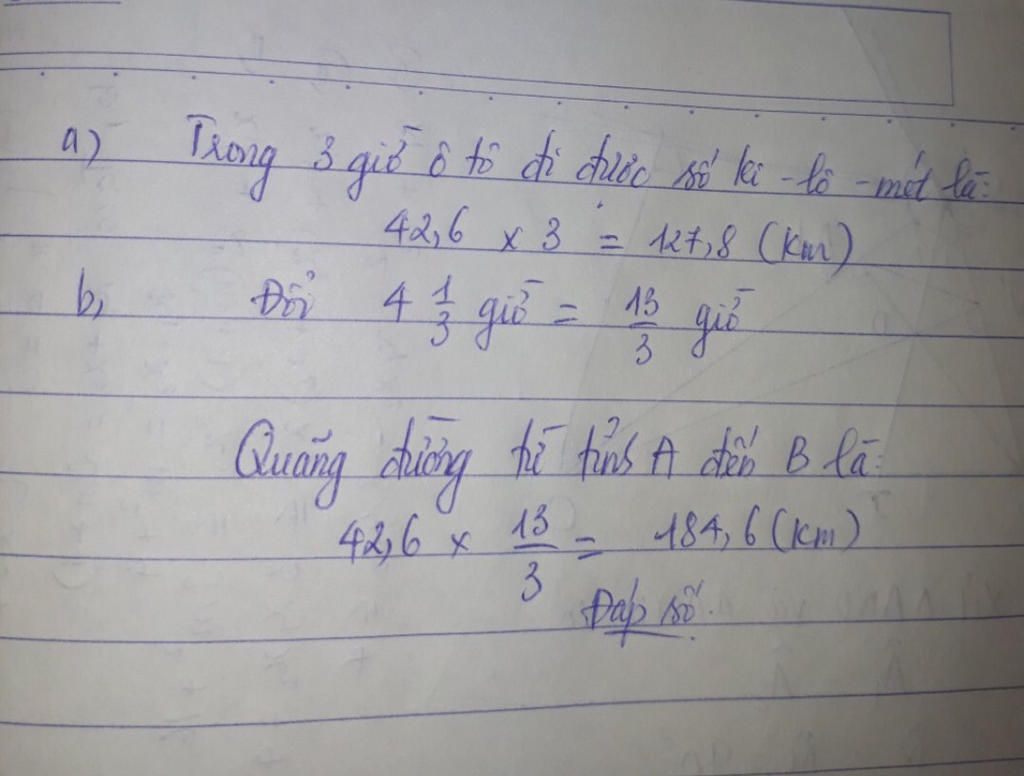 a) Trong 3 giờ ô tô đi được số ki-lô-mét là:
42,6 × 3 = 127,8 (km)
b, Đổi 4 1/3 giờ = 13/3 giờ
Quãng đường từ tỉnh A đến B là:
42,6 × 13/3 = 184,6 (km)
Đáp số.